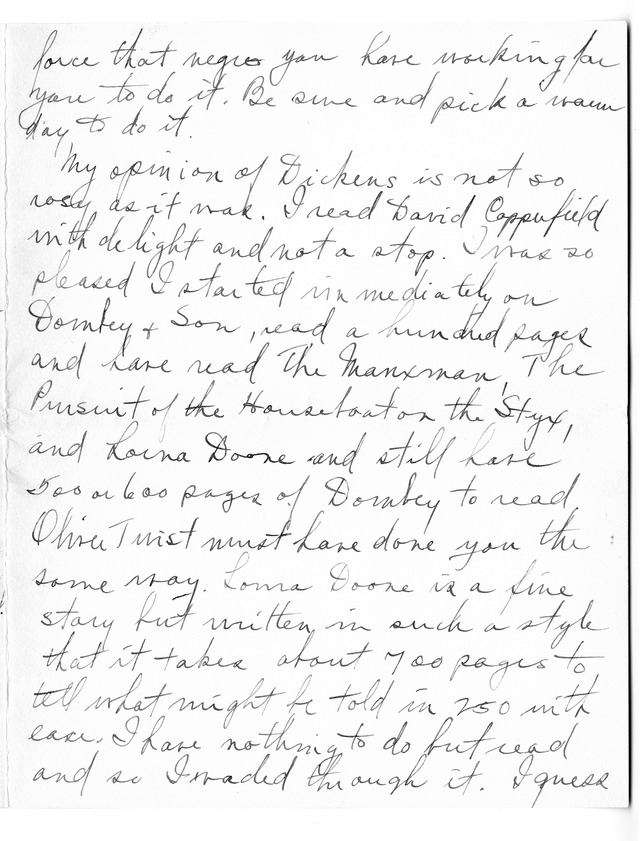 force that negro you have working for
you to do it. Be sure and pick a warm
day to do it.
My opinion of Dickens is not so
rosy as it was. I read David Copperfield
with delight and not a stop. I was so
pleased I started immediately on
Dombey + Son, read a hundred pages
and have read The Manxman, The
Pursuit of the Houseboat on the Styx,
and Lorna Doone and still have
500 or 600 pages of Dombey to read
Oliver Twist must have done you the
same way. Lorna Doone is a fine
story but written in such a style
that it takes about 700 pages to
tell what might be told in 250 with
ease. I have nothing to do but read
and so I waded through it. I guess